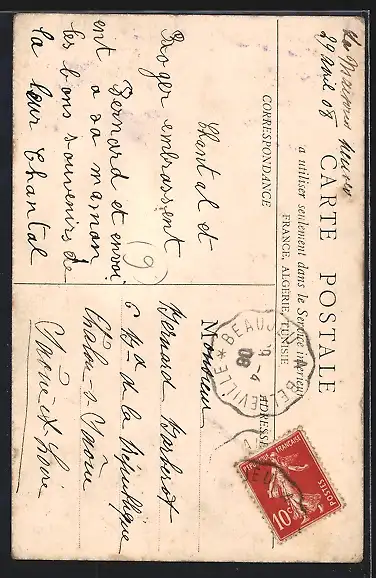 La Maison
29 avril 08
CARTE POSTALE
a utiliser seulement dans le Service intérieur
FRANCE, ALGÉRIE, TUNISIE
CORRESPONDANCE
ADRESSE
Chantal et
Roger embrassent
Bernard et envoi
ent a sa maman
les bons souvenirs de
la leur Chantal
(9)
Monsieur
Bernard Barberot
6 Bd de la République
Chalon-s-Saône
Saône et Loire
BEAUJ
BELLEVILLE *
9 -4
08
RÉPUBLIQUE FRANÇAISE
POSTES
10c